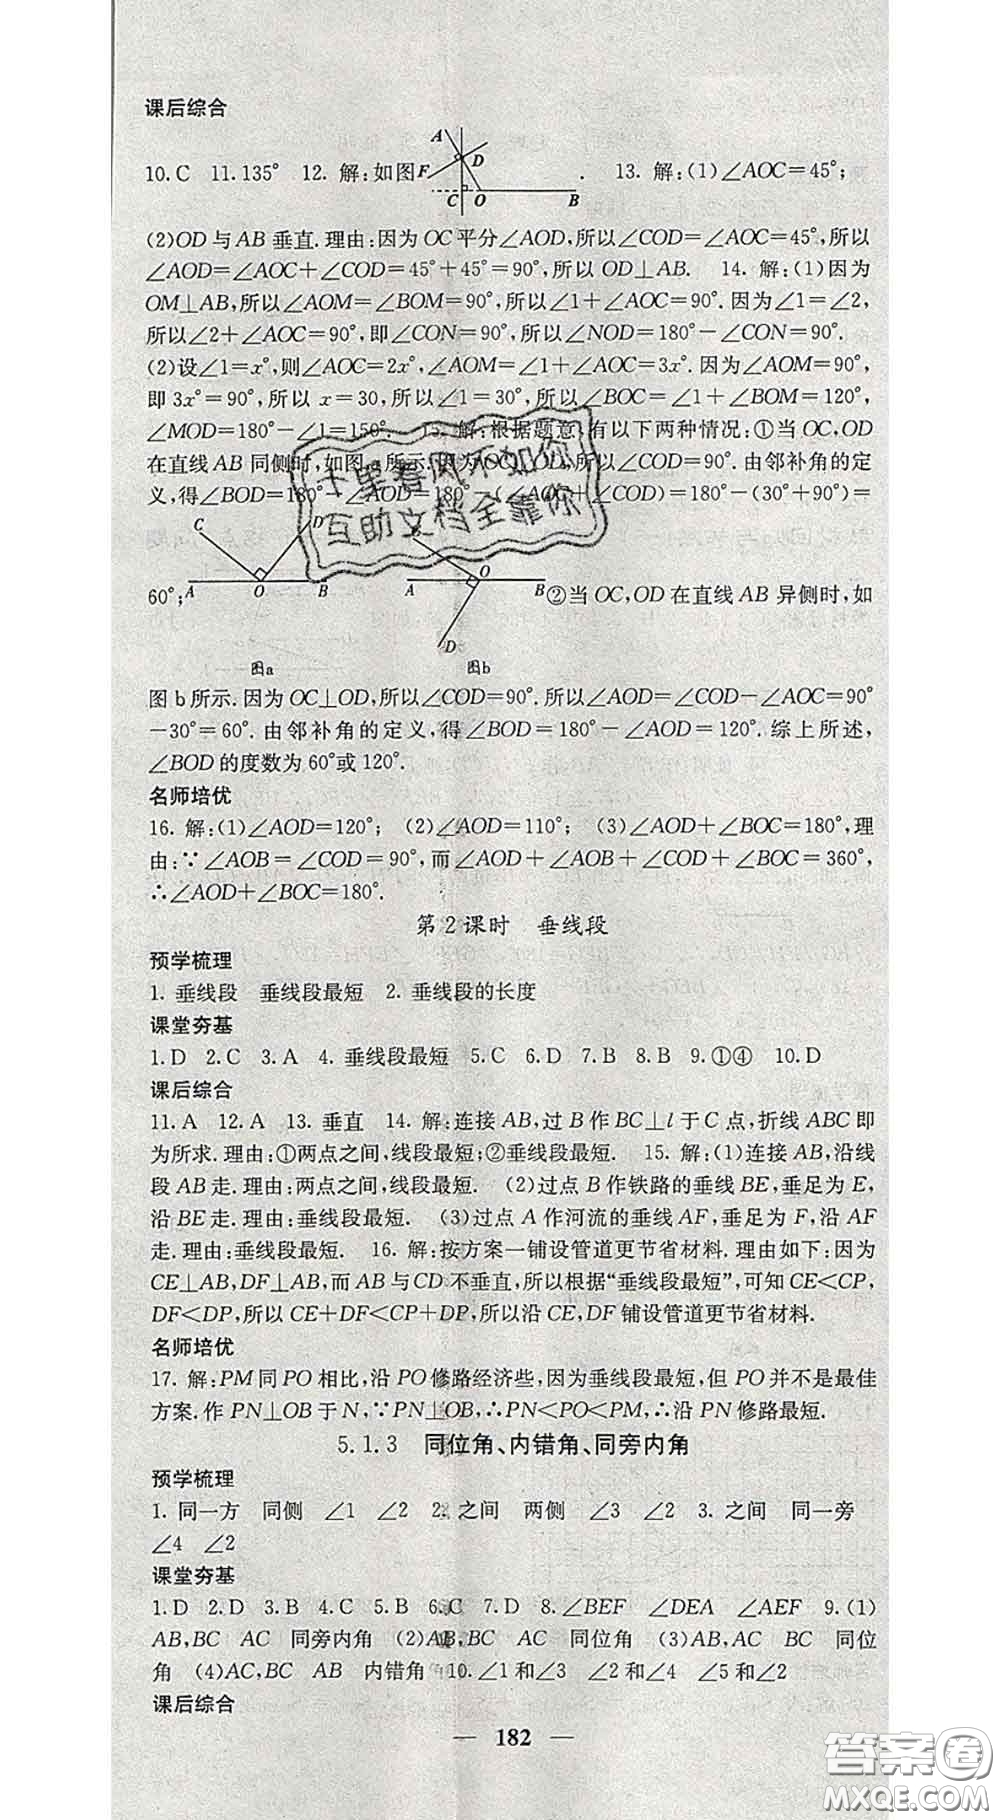 课后综合
10. C 11. 135° 12. 解:如图 A F D C O B . 13. 解:(1)∠AOC=45°;
(2)OD与AB垂直.理由:因为OC平分∠AOD,所以∠COD=∠AOC=45°,所以
∠AOD=∠AOC+∠COD=45°+45°=90°,所以OD⊥AB. 14. 解:(1)因为
OM⊥AB,所以∠AOM=∠BOM=90°,所以∠1+∠AOC=90°.因为∠1=∠2,
所以∠2+∠AOC=90°,即∠CON=90°,所以∠NOD=180°-∠CON=90°.
(2)设∠1=x°,则∠AOC=2x°,∠AOM=∠1+∠AOC=3x°.因为∠AOM=90°,
即3x°=90°,所以x=30,所以∠1=30°,所以∠BOC=∠1+∠BOM=120°,
∠MOD=180°-∠1=150°. 15. 解:根据题意,有以下两种情况:①当OC,OD
在直线AB同侧时,如图a所示.因为OC⊥OD,所以∠COD=90°.由邻补角的定
义,得∠BOD=180°-∠AOD=180°-(∠AOC+∠COD)=180°-(30°+90°)=
十里春风不如你
互助文档全靠你
60°; C D A O B A O B D ②当OC,OD在直线AB异侧时,如
图a 图b
图b所示.因为OC⊥OD,所以∠COD=90°.所以∠AOD=∠COD-∠AOC=90°
-30°=60°.由邻补角的定义,得∠BOD=180°-∠AOD=120°.综上所述,
∠BOD的度数为60°或120°.
名师培优
16. 解:(1)∠AOD=120°; (2)∠AOD=110°; (3)∠AOD+∠BOC=180°,理
由:∵∠AOB=∠COD=90°,而∠AOD+∠AOB+∠COD+∠BOC=360°,
∴∠AOD+∠BOC=180°.
第2课时 垂线段
预学梳理
1. 垂线段 垂线段最短 2. 垂线段的长度
课堂夯基
1. D 2. C 3. A 4. 垂线段最短 5. C 6. D 7. B 8. B 9. ①④ 10. D
课后综合
11. A 12. A 13. 垂直 14. 解:连接AB,过B作BC⊥l于C点,折线ABC即
为所求.理由:①两点之间,线段最短;②垂线段最短. 15. 解:(1)连接AB,沿线
段AB走.理由:两点之间,线段最短. (2)过点B作铁路的垂线BE,垂足为E,
沿BE走.理由:垂线段最短. (3)过点A作河流的垂线AF,垂足为F,沿AF
走.理由:垂线段最短. 16. 解:按方案一铺设管道更节省材料.理由如下:因为
CE⊥AB,DF⊥AB,而AB与CD不垂直,所以根据“垂线段最短”,可知CE<CP,
DF<DP,所以CE+DF<CP+DP,所以沿CE,DF铺设管道更节省材料.
名师培优
17. 解:PM同PO相比,沿PO修路经济些,因为垂线段最短,但PO并不是最佳
方案.作PN⊥OB于N,∵PN⊥OB,∴PN<PO<PM,∴沿PN修路最短.
5.1.3 同位角、内错角、同旁内角
预学梳理
1. 同一方 同侧 ∠1 ∠2 2. 之间 两侧 ∠3 ∠2 3. 之间 同一旁
∠4 ∠2
课堂夯基
1. D 2. D 3. B 4. C 5. B 6. C 7. D 8. ∠BEF ∠DEA ∠AEF 9. (1)
AB,BC AC 同旁内角 (2)AB,BC AC 同位角 (3)AB,AC BC 同位
角 (4)AC,BC AB 内错角 10. ∠1和∠3 ∠2和∠4 ∠5和∠2
课后综合
— 182 —
答案圈
MXQE.COM